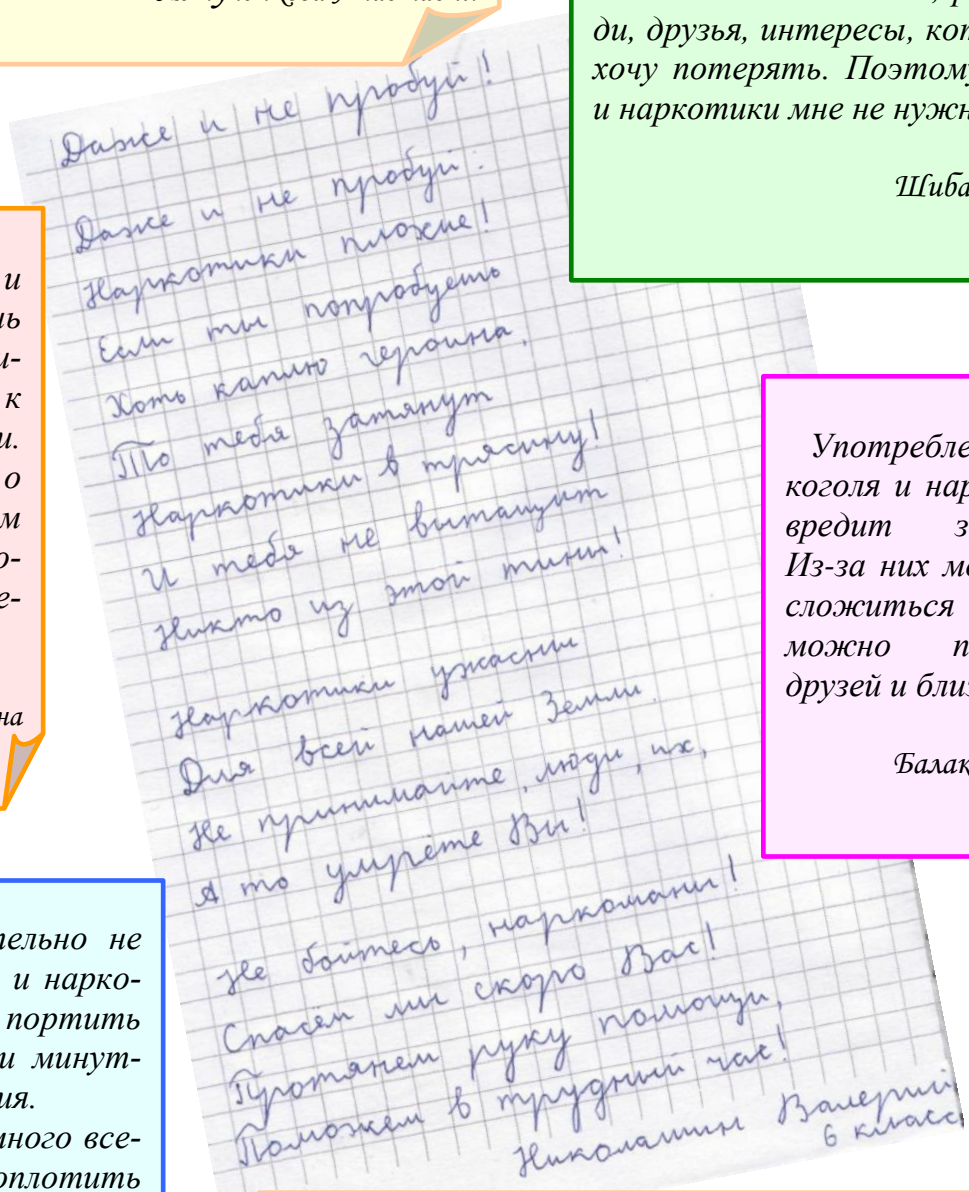 ди, друзья, интересы, кот
хочу потерять. Поэтому
и наркотики мне не нужн
Шиба
Даже и не пробуй!
Даже и не пробуй!
Наркотики плохие!
Если ты попробуешь
Хоть каплю героина,
То тебя затянут
Наркотики в трясину!
И тебя не вытащит
Никто из этой тины!
Наркотики ужасны
Для всей нашей Земли.
Не принимайте, люди, их,
А то умрёте Вы!
Не бойтесь, наркоманы!
Спасём мы скоро Вас!
Протянем руку помощи,
Поможем в трудный час!
Николашин Валерий
6 класс
и
нь
и-
к
и.
о
м
о-
е-
на
Употребле
коголя и нар
вредит з
Из-за них мо
сложиться
можно п
друзей и близ
Балак
тельно не
и нарко-
портить
и минут-
ия.
много все-
оплотить